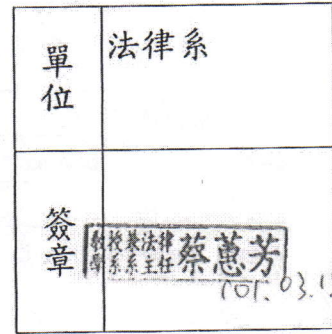 單位
法律系
簽章
教授兼法律
學系系主任
蔡蕙芳
101.03.1